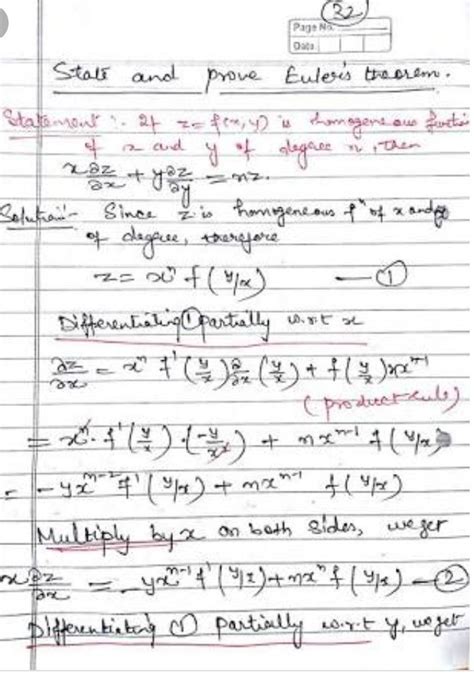 32
Page No.
Date
State and prove Euler's theorem.
Statement :- If z = f(x, y) is homogeneous function
of x and y of degree n, then
x ∂z/∂x + y ∂z/∂y = nz.
Solution:- Since z is homogeneous fⁿ of x and y
of degree, therefore
z = xⁿ f (y/x) — ①
Differentiating ① partially w.r.t x
∂z/∂x = xⁿ f' (y/x) ∂/∂x (y/x) + f (y/x) nxⁿ⁻¹
(product rule)
= xⁿ. f' (y/x) . (-y/x²) + nxⁿ⁻¹ f (y/x)
= - yxⁿ⁻² f' (y/x) + nxⁿ⁻¹ f (y/x)
Multiply by x on both sides, we get
x ∂z/∂x = - yxⁿ⁻¹ f' (y/x) + nxⁿ f (y/x) — ②
Differentiating ① partially w.r.t y, we get